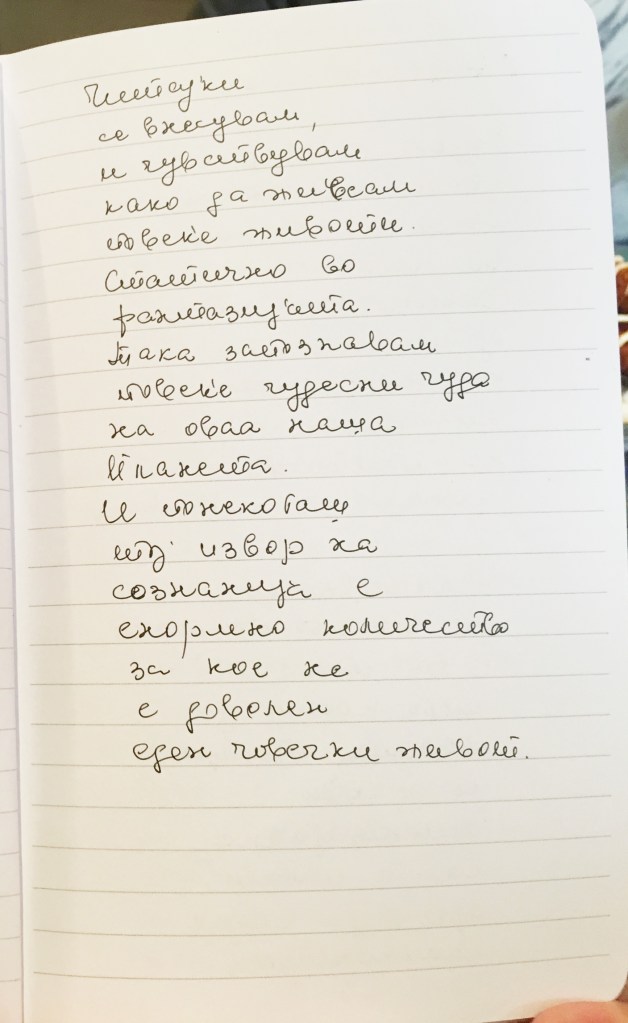 Читајќи
се внесувам,
и чувствувам
како да живеам
повеќе животи.
Статично во
фантазијата.
Така запознавам
повеќе чудесни чуда
на оваа наша
планета.
И понекогаш
тој извор на
сознанија е
енормно количество
за кое не
е доволен
еден човечки живот.